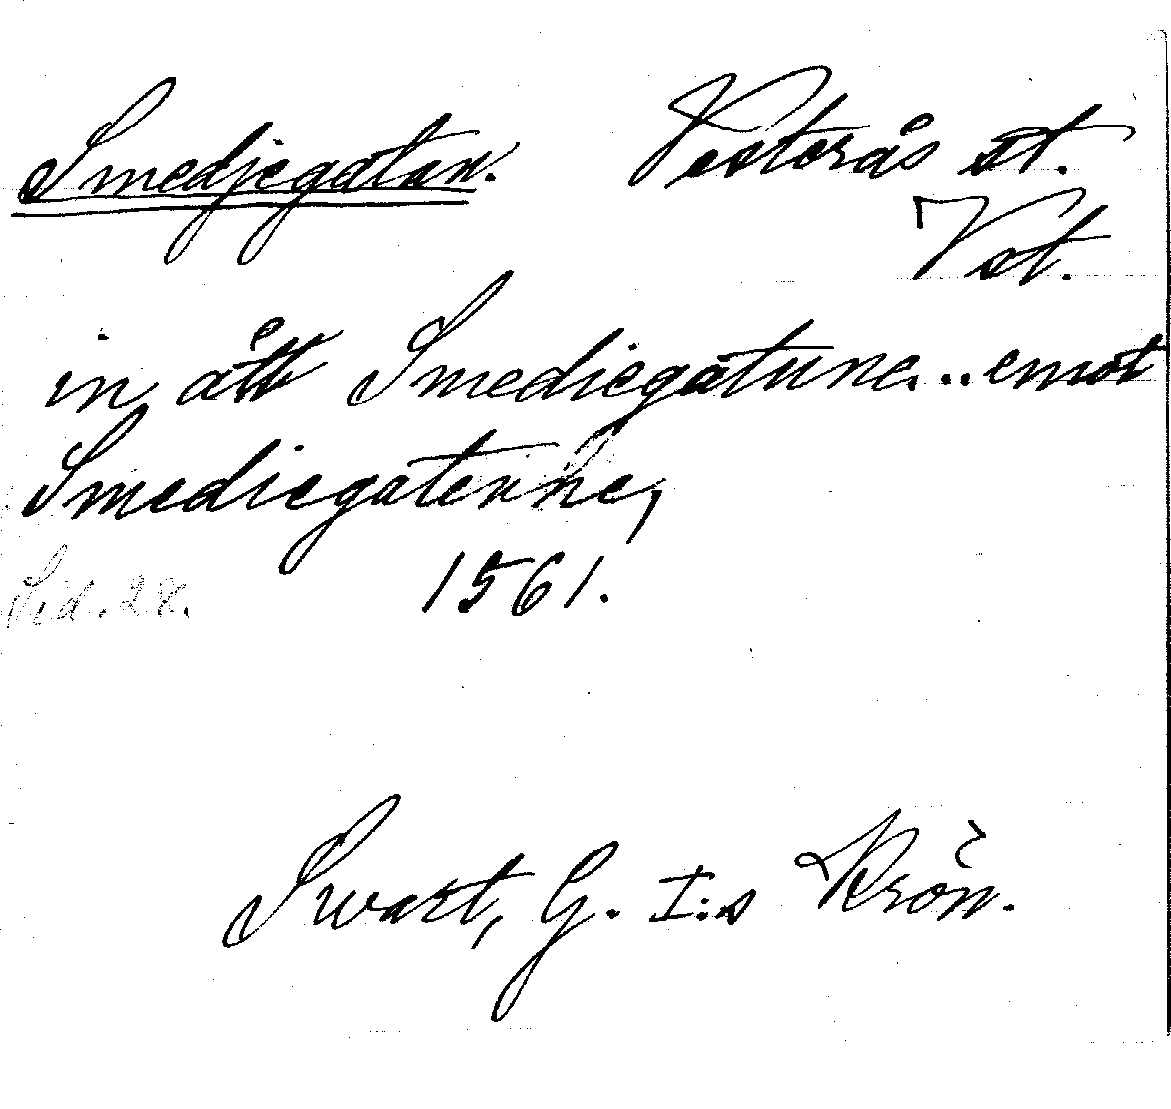 Smedjegatan. Vesterås st.
Vst.
inått Smediegatune... emot
Smediegatenne,
Sid. 28. 1561.
Swart, G. I:s Krön.